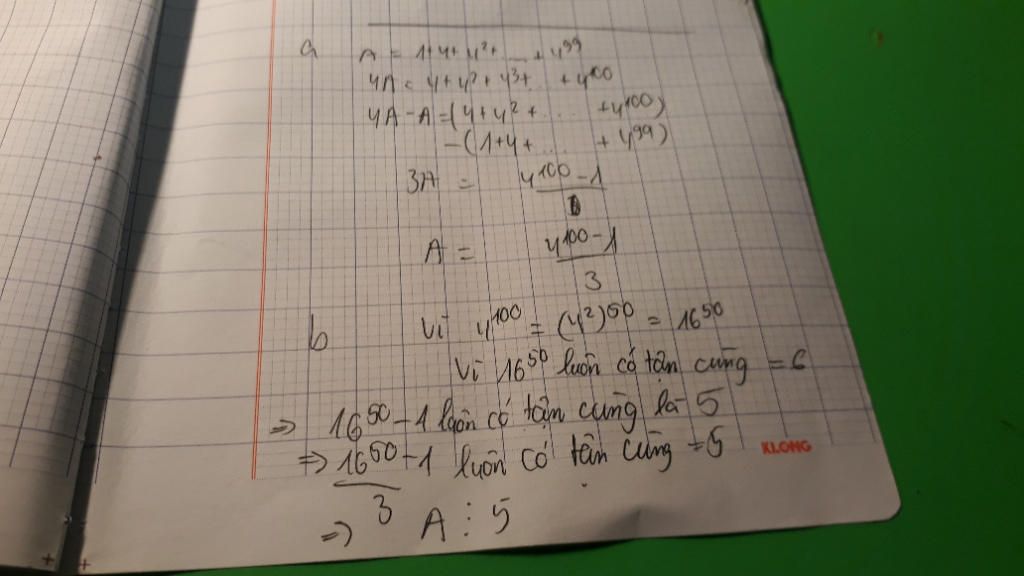 a A = 1+4+4²+ ... + 4⁹⁹
4A = 4+4²+4³+ ... +4¹⁰⁰
4A-A = (4+4²+ .... +4¹⁰⁰)
-(1+4+ .... + 4⁹⁹)
3A = 4¹⁰⁰-1
A = 4¹⁰⁰-1
3
b Vì 4¹⁰⁰ = (4²)⁵⁰ = 16⁵⁰
Vì 16⁵⁰ luôn có tận cùng = 6
=> 16⁵⁰-1 luôn có tận cùng là 5
=> 16⁵⁰-1 luôn có tận cùng =5
3
=> A ⋮ 5
KLONG